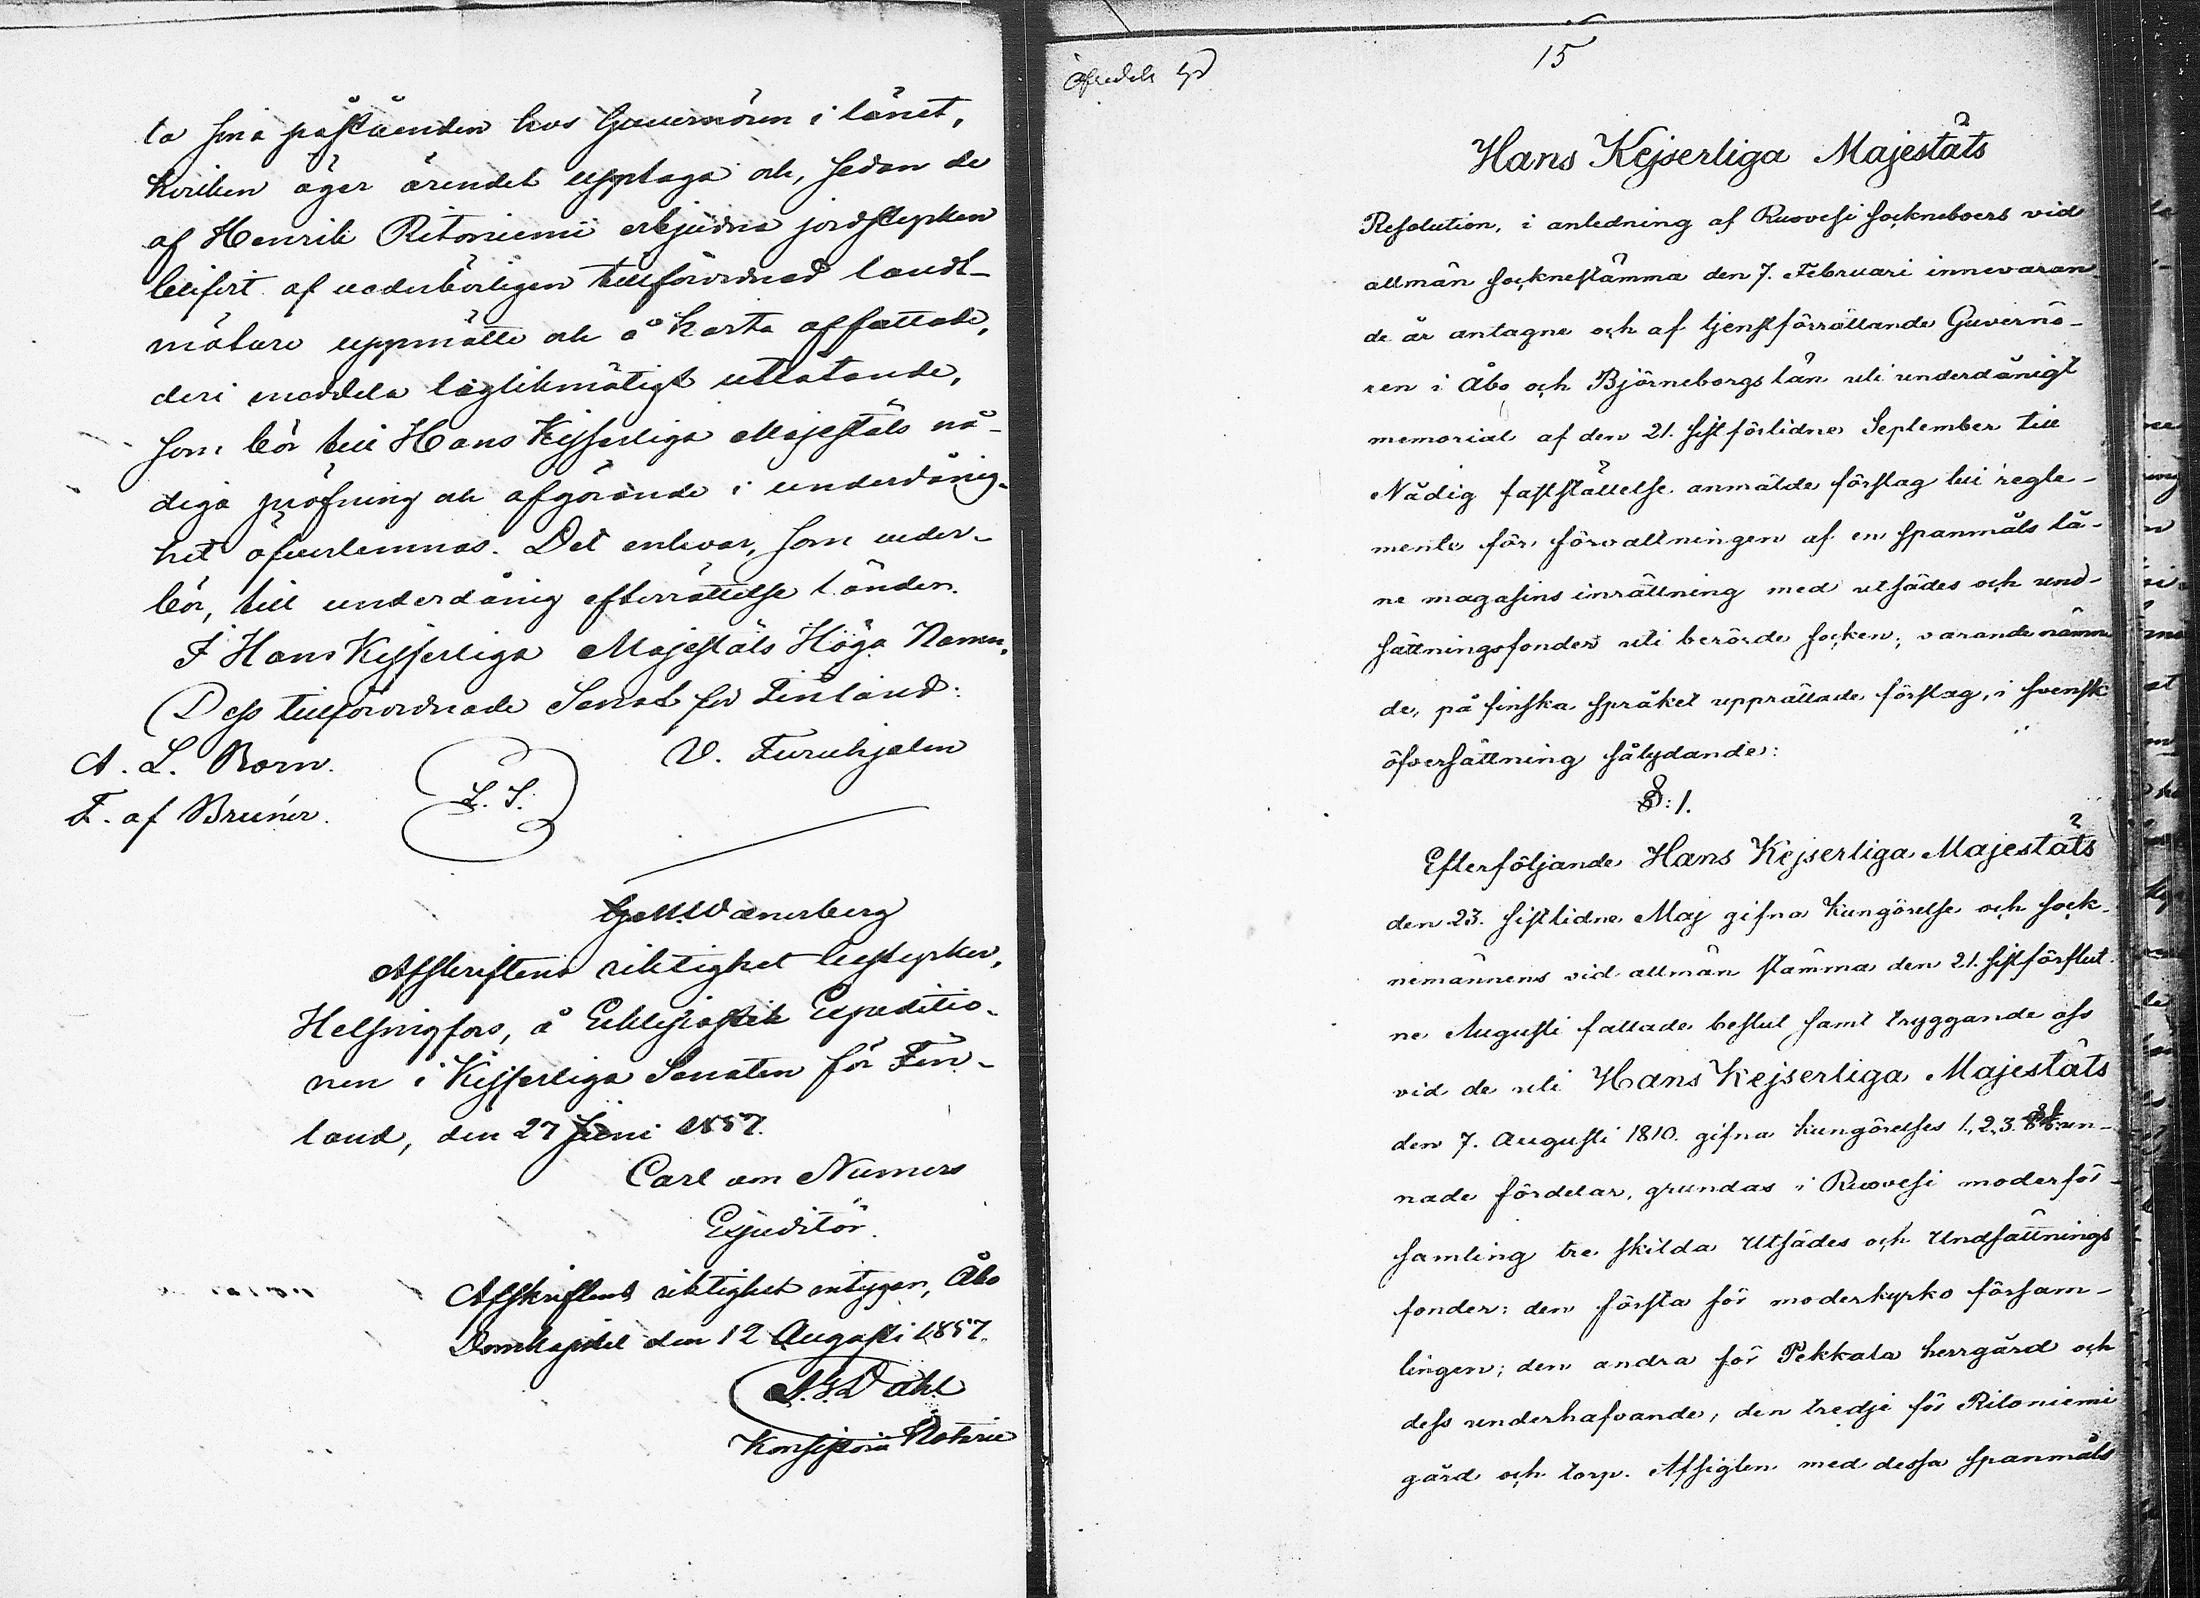 ta sina påståenden hos Guvernören i länet,
hvilken äger ärendet upptaga och, sedan de
af Henrik Ritoniemi erbjudna jordstycken
blifvit af vederbörligen tillförordnad landt-
mätare uppmätte och å karta affattade,
deri meddela laglikmätigt utlåtande,
som bör till Hans Kejserliga Majestäts nå-
diga pröfning och afgörande i underdånig-
het öfverlemnas. Det enhvar, som veder-
bör, till underdånig efterrättelse länder.
I Hans Kejserliga Majestäts Höga Namn,
Dess tillförordnade Senat för Finland:
A. L. Born. V. Furuhjelm
F. af Brunér. L. S.
G. M. Wænerberg
Afskriftens riktighet bestyrker,
Helsingfors, å Ecklesiastik Expeditio-
nen i Kejserliga Senaten för Fin-
land, den 27 Juni 1857.
Carl von Numers
Expeditör.
Afskriftens riktighet intygar, Åbo
Domkapitel den 12 Augusti 1857.
Dahl
Konsistorii Notarie
15
Hans Kejserliga Majestäts
Resolution, i anledning af Ruovesi sockneboers vid
allmän socknestämma den 7. Februari innevaran
de år antagne och af tjenstförrättande Guvernö-
ren i Åbo och Björneborgs län uti underdånigt
memorial af den 21. sistförlidne September till
Nådig fastställelse anmälde förslag till regle-
mente för förvaltningen af en spanmåls lå-
ne magasins inrättning med utsädes och und-
sättningsfonder uti berörde socken; varande nämn
de, på finska språket upprättade förslag, i svensk
öfversättning sålydande:
§: 1.
Efterföljande Hans Kejserliga Majestäts
den 23. sistlidne Maj gifna Kungörelse och sock-
nemännens vid allmän stämma den 21. sistförflut-
ne Augusti fattade beslut samt tryggande oss
vid de uti Hans Kejserliga Majestäts
den 7. Augusti 1810. gifna kungörelses 1., 2., 3. §§. un-
nade fördelar, grundas i Ruovesi moderför-
samling tre skilda Utsädes och Undsättnings
fonder: den första för moderkyrko försam-
lingen; den andra för Pekkala herrgård och
dess underhafvande, den tredje för Ritoniemi
gård och torp. Afsigten med dessa spanmåls